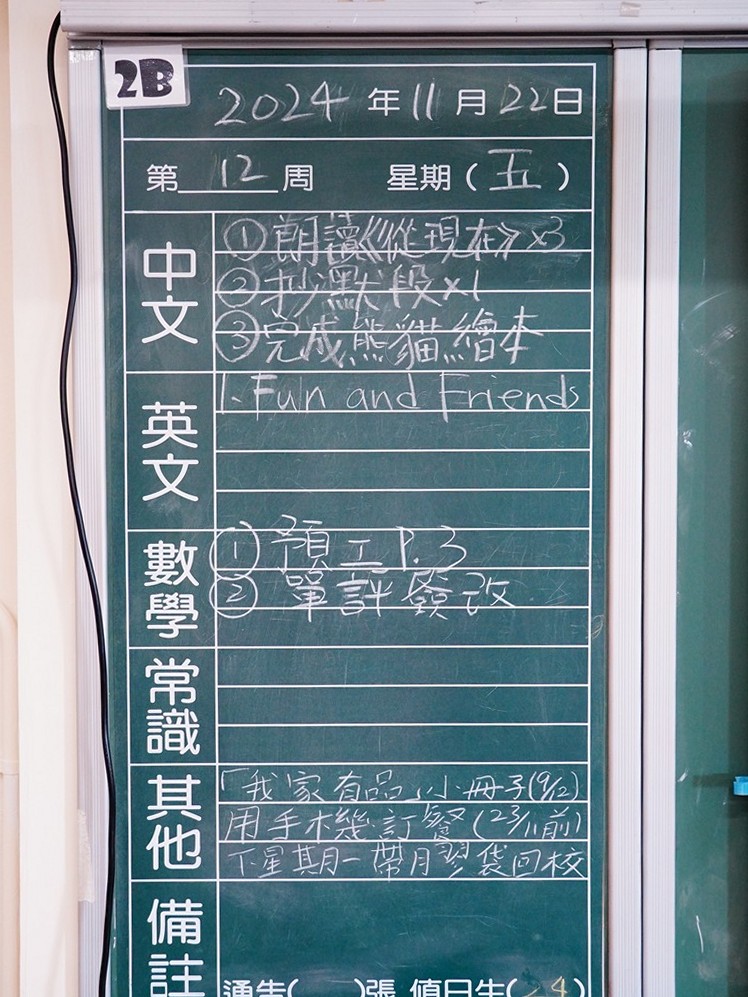 2B
2024年11月22日
第 12 周 星期(五)
中文
①朗讀《從現在》×3
②抄默段×1
③完成熊貓繪本
英文
1. Fun and Friends
數學
① 預工P.3
② 單評簽改
常識
其他
「我家有品」小冊子(9/12)
用手機訂餐(23/11前)
下星期一帶月習袋回校
備註
通告( )張 值日生( 24 )